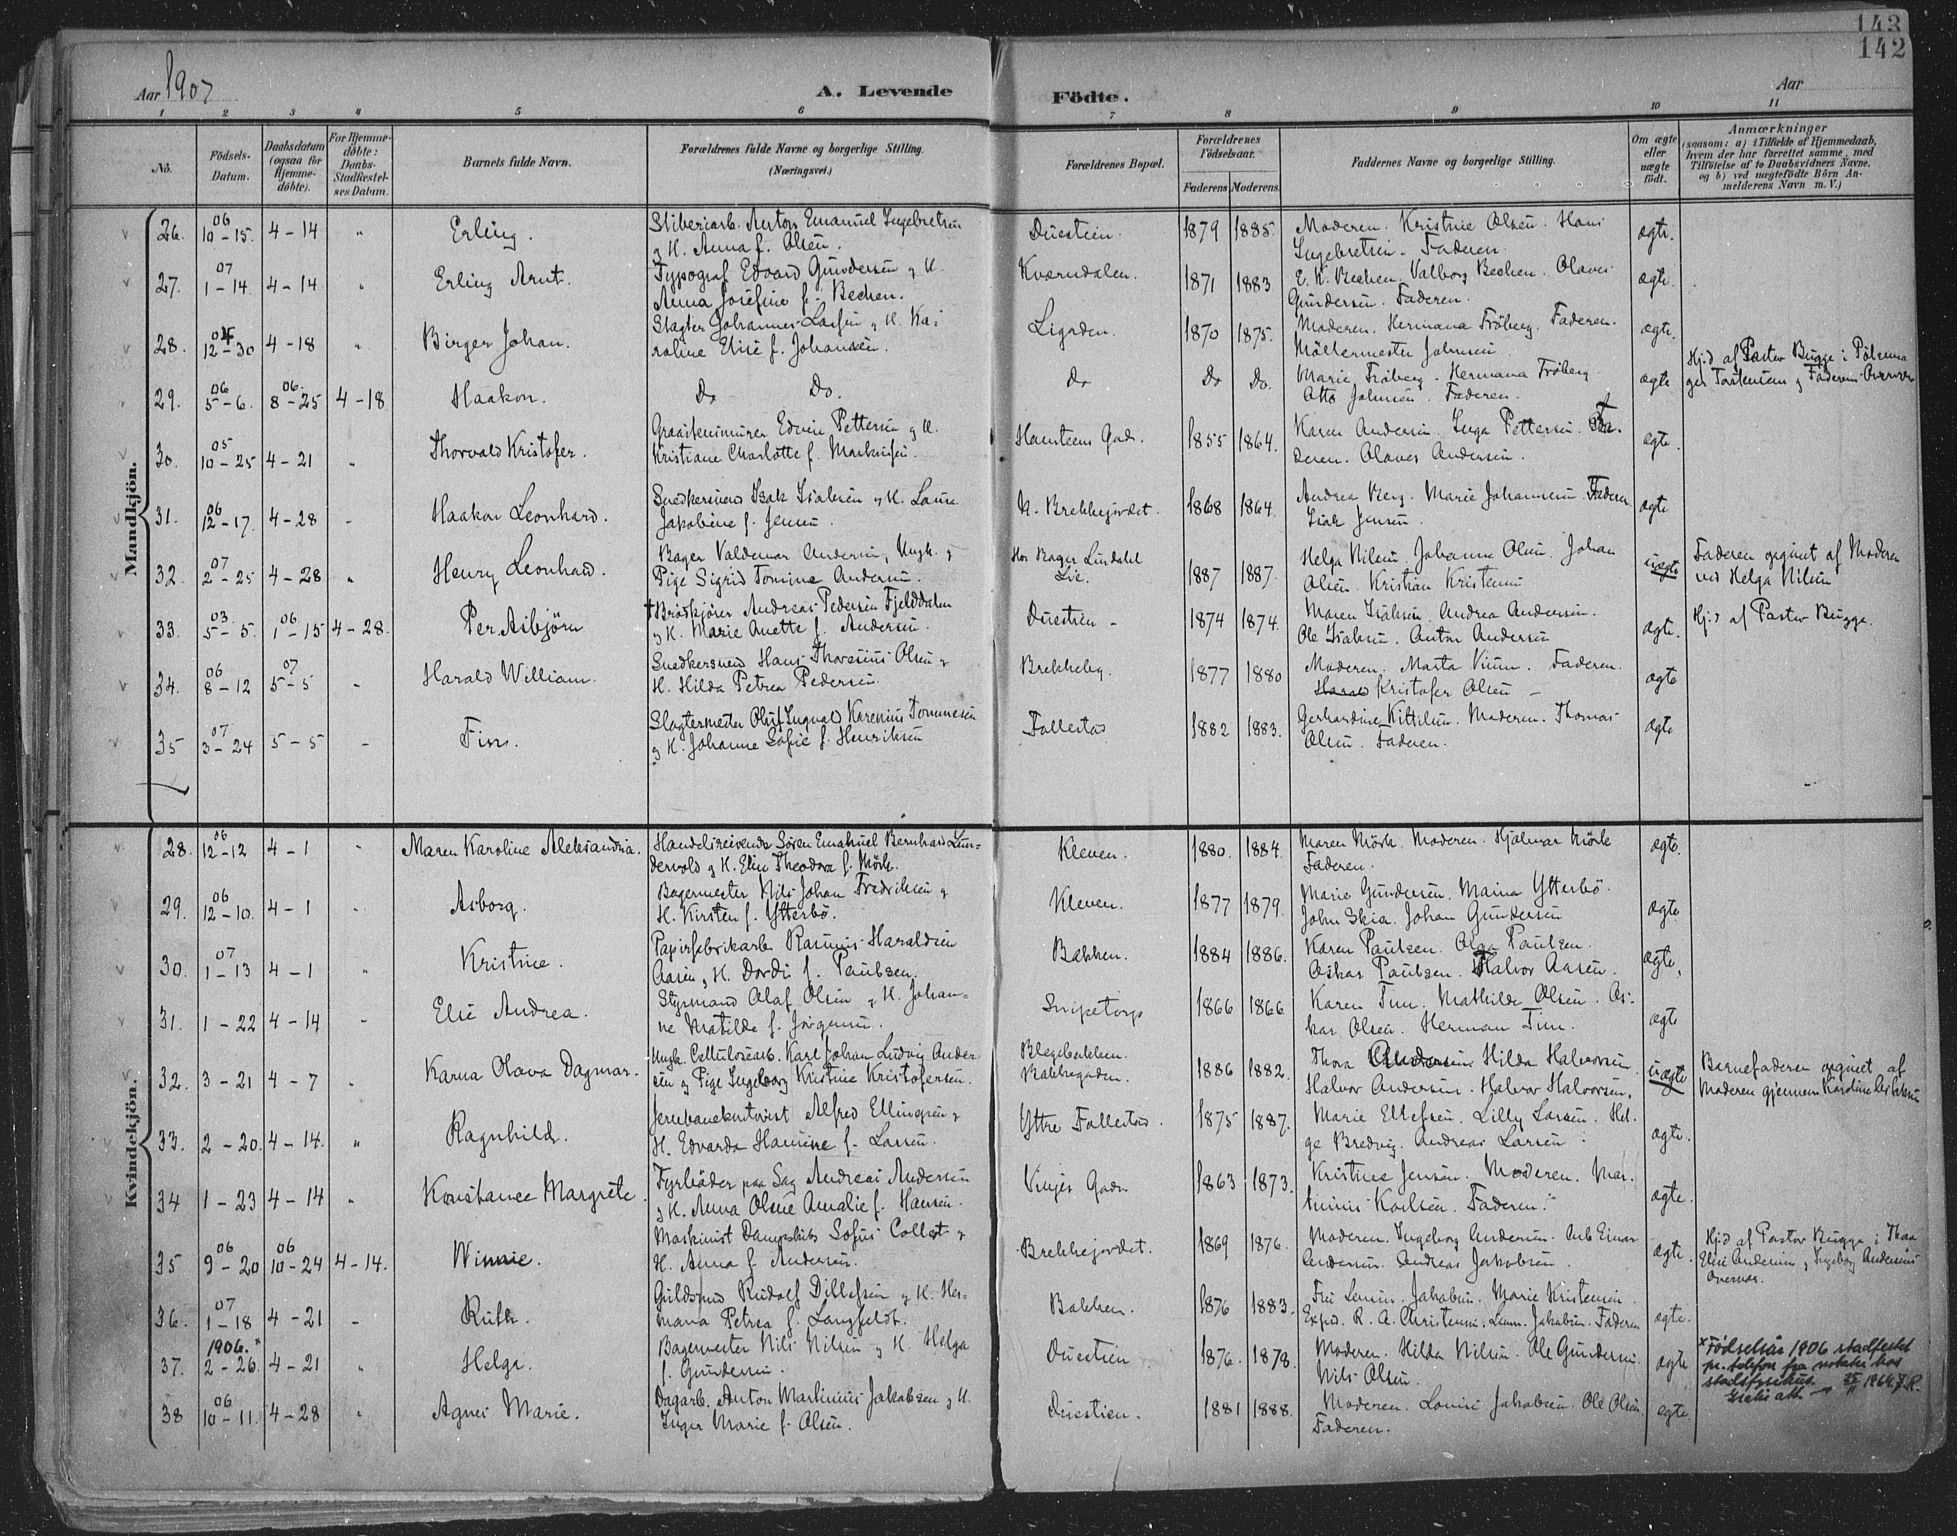 143
142
Aar 1907
A. Levende
Födte.
Aar
1 2 3 4 5 6 7 8 9 10 11
No.
Födsels-Datum.
Daabsdatum (ogsaa for Hjemme-döbte).
For Hjemme-döbte: Daabs-Stadfæstel-ses Datum.
Barnets fulde Navn.
Forældrenes fulde Navne og borgerlige Stilling. (Næringsvei.)
Forældrenes Bopæl.
Forældrenes Födselsaar.
Faderens Moderens
Faddernes Navne og borgerlige Stilling.
Om ægte eller uægte födt.
Anmærkninger
(saasom: a) i Tilfælde af Hjemmedaab,
hvem der har forrettet samme, med
Tilföielse af to Daabsvidners Navne,
og b) ved uægtefödte Börn An-
melderens Navn m. V.)
Mandkjön.
26. 06 10-15. 4-14 " Erling. Sliberiarb. Anton Emanuel Ingebretsen Duestien. 1879 1885. Moderen. Kristine Olsen. Hans ægte.
g H. Anna f. Olsen. Ingebretsen. Faderen.
27. 07 1-14. 4-14 " Erling Arnt. Typograf Edvard Gundersen g H. Kværndalen. 1871 1883. E. K. Bechen. Valborg Bechen. Olaves ægte.
Anna Josefine f. Bechen. Gundersen. Faderen.
28. 12-30 4-18 " Birger Johan. Slagter Johannes Larsen g H. Ka- Ligaden. 1870 1875. Moderen. Hermana Fröberg. Faderen. ægte.
roline Elise f. Johansen. Möllermester Johnsen
29. 06 5-6. 06 8-25 4-18 Haakon. Do Do. Do Do Do. Marie Fröberg. Hermana Fröberg. ægte Hj.d af Pastor Bugge i
Otto Johnsen. Faderen.
30. 05 10-25 4-21 " Thorvald Kristofer. Graastensmurer Edvin Pettersen g H. Hansteens Gade. 1855 1864. Karen Andersen. Inga Pettersen. Fa- ægte.
Kristiane Charlotte f. Markussen. deren. Olaves Andersen.
31. 06 12-17. 4-28 - Haakon Leonhard. Snedkersvend Isak Isaksen g H. Laura N. Brekkejordet. 1868 1864. Andrea Berg. Marie Johannesen. Faderen. ægte
Jakobine f. Jensen. Isak Jensen.
32. 07 2-25 4-28 " Henry Leonhard. Bager Valdemar Andersen, Ungk. g Hos Bager Lindahl 1887 1887. Helga Nilsen. Johanne Olsen. Johan uægte Faderen opgivet af Moderen
Pige Sigrid Tomine Andersen. Lie. Olsen. Kristian Kristensen ved Helga Nilsen
33. 03 5-5. 06 1-15 4-28. Per Asbjörn †Brödkjörer Andreas Pedersen Fjelddalen Duestien - 1874 1874. Maren Isaksen. Andrea Andersen. ægte. Hj.d af Pastor Bugge.
g H. Marie Anette f. Andersen. Ole Isaksen. Anton Andersen
34. 06 8-12 07 5-5 - Harald William. Snedkersvend Hans Thorenius Olsen g Brekkeby. 1877 1880 Moderen. Marta Vium. Faderen. ægte
H. Hilda Petrea Pedersen. Harald Kristofer Olsen -
35 07 3-24 5-5 - Finn. Slagtermester Oluf Ingvald Karenius Tommesen Follestad 1882 1883. Gerhardine Kittilsen. Moderen. Thomas ægte
g H. Johanne Sofie f. Henriksen Olsen. Faderen.
Kvindekjön.
28. 06 12-12 4-1 " Maren Karoline Aleksandria. Handelsreisende Sören Emanuel Bernhard Lun- Kleven. 1880. 1884. Maren Mörk. Moderen. Hjalmar Mörk ægte.
dervold g H. Elise Theodora f. Mörk. Faderen.
29. 06 12-10. 4-1 " Asborg. Bagermester Nils Johan Fredriksen g Kleven. 1877 1879. Marie Gundersen. Maina Ytterbö. ægte
H. Kirsten f. Ytterbö. John Skia. Johan Gundersen
30. 07 1-13 4-1 " Kristine. Papirfabrikarb. Rasmus Haraldsen Bakken. 1884 1886. Karen Paulsen. Olga Paulsen. ægte,
Aasen g H. Dordi f. Paulsen. Oskar Paulsen. Halvor Aasen.
31. 1-22 4-14 - Elie Andrea. Styrmand Olaf Olsen g H. Johan- Snipetorp 1866 1866 Karen Tim. Mathilde Olsen. Os- ægte
ne Matilde f. Jörgensen. kar Olsen. Herman Tim.
32. 3-21 4-7 " Karna Olava Dagmar. Ungk. Cellulosearb. Karl Johan Ludvig Ander- Blegebakken 1886 1882. Thora Andersen Hilda Halvorsen uægte Barnefaderen opgivet af
sen g Pige Ingeborg Kristine Kristofersen. Bakkegaden. Halvor Andersen. Halvor Halvorsen. Moderen gjennem Karoline
33. 2-20. 4-14. " Ragnhild. Jernbanekontorist Alfred Ellingsen g Ytre Follestad. 1875 1887. Marie Ellefsen. Lilly Larsen. Hel- ægte.
H. Edvarda Hansine f. Larsen. ge Bredvig. Andreas Larsen.
34 1-23 4-14 " Konstance Margrete. Fyrböder paa Sag Andreas Andersen Vinjes Gade 1863 1873. Kristine Jensen. Moderen. Mar- ægte.
g H. Anna Olsine Amalie f. Hansen. tinius Karlsen. Faderen.
35 06 9-20 06 10-24 4-14. Winnie. Maskinist Dampskibs Sofus Collet g Brekkejordet. 1869 1876. Moderen. Ingeborg Andersen. Arb Einar ægte. Hj.d af Pastor Bugge i
H. Anna f. Andersen. Andersen. Andreas Jakobsen. Elise Andersen g Ingeborg Andersens
Overvær.
36. 07 1-18 4-21 - Ruth. Guldsmed Rudolf Dillefsen g H. Her- Bakken. 1876 1883. Fru Jakobsen. Marie Kristensen. ægte.
mana Petrea f. Langfeldt. Exped. R. A. Christensen. Jakobsen. Faderen
37. 1906.* 2-26. 4-21 " Helga Bagermester Nils Nilsen g H. Helga Duestien 1876. 1878. Moderen. Hilda Nilsen. Ole Gundersen. ægte *Fødselsår 1906 stadfestet
f. Gundersen. Nils Olsen. pr. telefon fra notater hos
stadsfysikus. 25/11 1964. J.R.
38 06 10-11. 4-28 " Agnes Marie. Dagarb. Anton Martinius Jakobsen g H. Duestien. 1881 1888. Moderen. Lovise Jakobsen. Ole Olsen. ægte. Gratis att.
Inger Marie f. Olsen. Faderen.